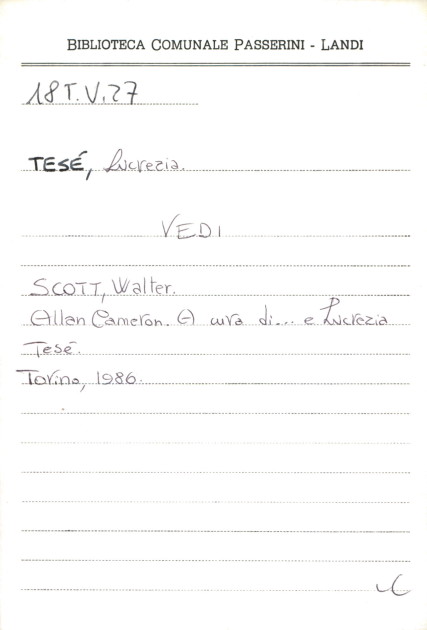 BIBLIOTECA COMUNALE PASSERINI - LANDI
18 T.V.27
TESÉ, Lucrezia.
VEDI
SCOTT, Walter.
Allan Cameron. A cura di... e Lucrezia
Tesé.
Torino, 1986.